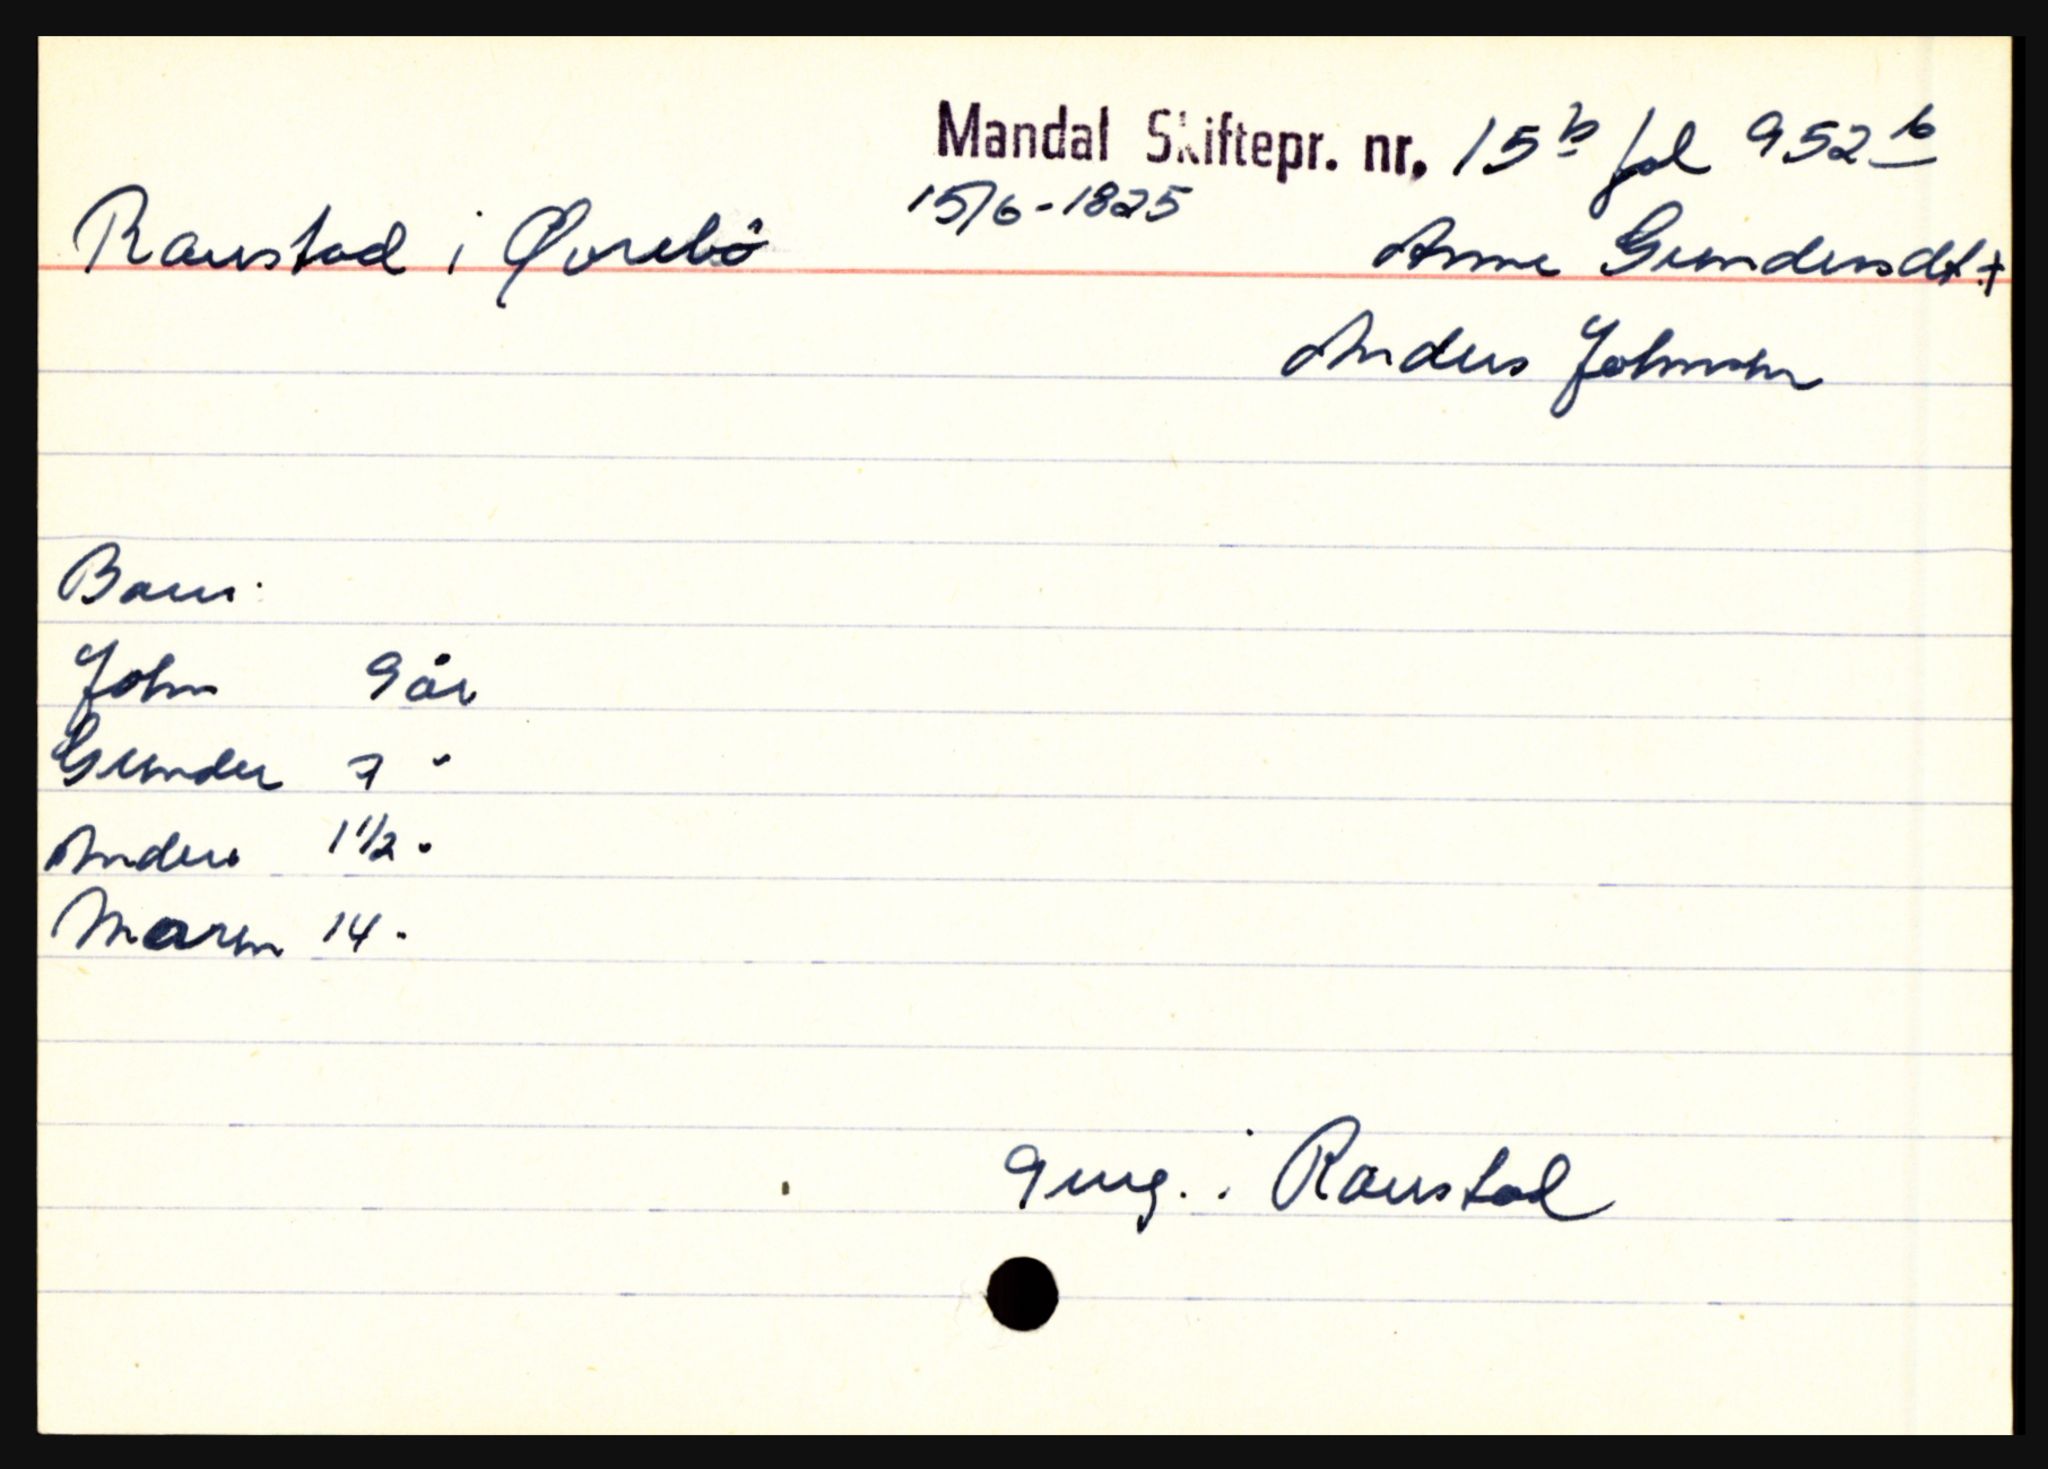 Mandal Skiftepr. nr. 15b fol 952b
15/6-1825
Raustad i Øvrebö Anne Gundersdt. +
Anders Johnsen
Barn:
John 9 år
Gunder 7 "
Anders 1 1/2 "
Maren 14 "
Gmg. i Raustad